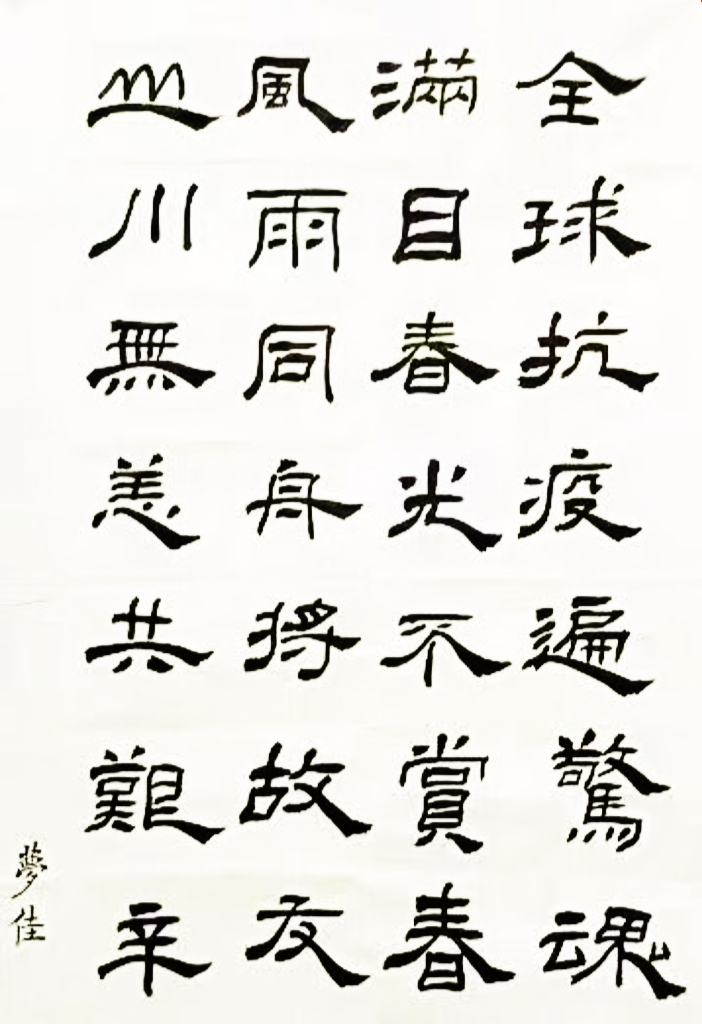 全球抗疫遍驚魂
滿目春光不賞春
風雨同舟將故友
山川無恙共艱辛
夢佳